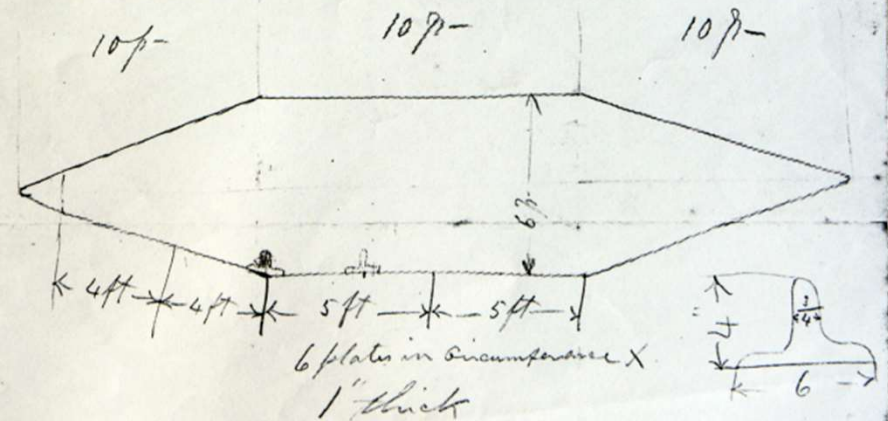 10 ft 10 ft 10 ft
6 ft
4 ft 4 ft 5 ft 5 ft
3/4
4
6
6 plates in circumference X
1" thick